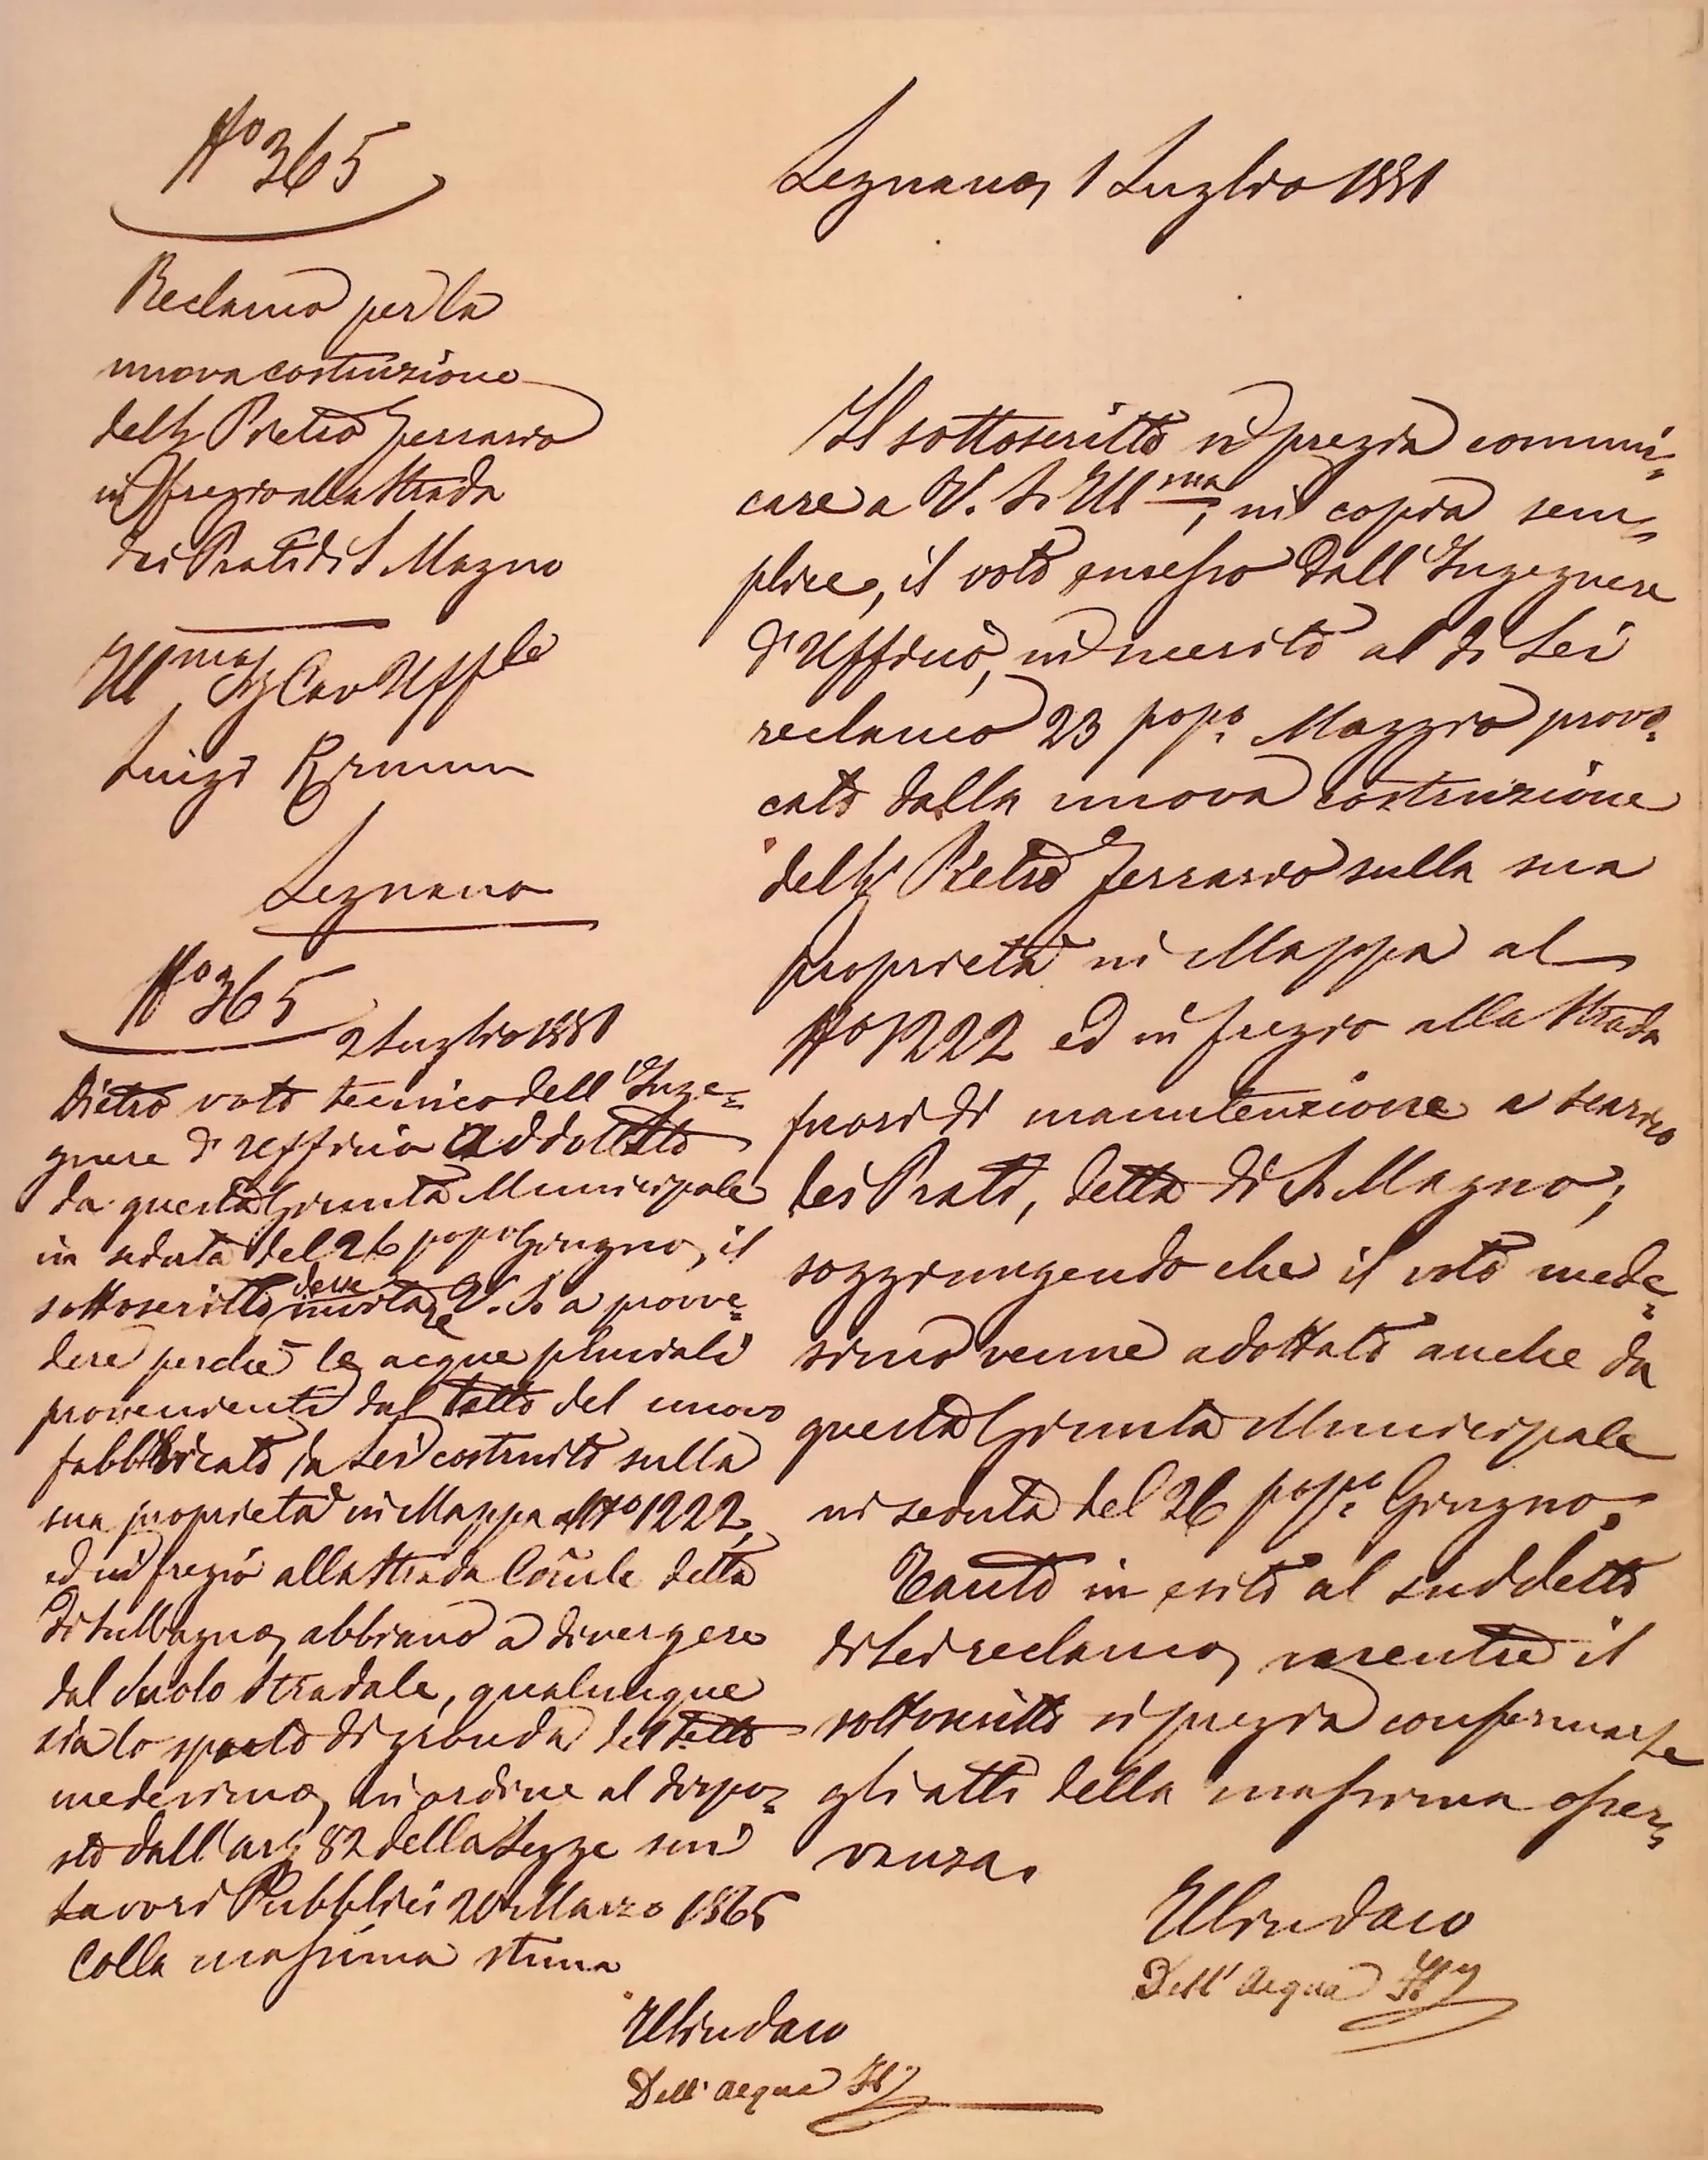 N.o 365
Reclamo per la
nuova costruzione
del Sg Pietro Ferrario
in fregio alla Strada
dei Prati di S Magno
Ill.mo Sg Cav Uff.le
Luigi
Legnano
Legnano, 1 Luglio 1881
Il sottoscritto si pregia communi=
care a V. S. Ill.ma, in copia sem=
plice, il voto emesso dall'Ingegnere
d'Ufficio, in merito al di Lei
reclamo 23 pop.o Maggio provo=
cato dalla nuova costruzione
del Sg Pietro Ferrario sulla sua
proprietà in Mappa al
N.o 1222 ed in fregio alla Strada
fuori di manutenzione a
dei Prati, detta di S. Magno;
soggiungendo che il voto mede=
simo venne adottato anche da
questa Giunta Municipale
in seduta del 26 pop.o Giugno.
Tanto in esito al suddetto
di Lei reclamo, mentre il
sottoscritto si pregia confermarle
gli atti della massima osser=
vanza.
Il Sindaco
Dell'Acqua
N.o 365
2 Luglio 1881
Dietro voto tecnico dell'Inge=
gnere d'Ufficio addottato
da questa Giunta Municipale
in seduta del 26 pop.o Giugno, il
sottoscritto deve invitare V. S. a provve=
dere perchè le acque pluviali
provenienti dal tetto del nuovo
fabbricato da Lei costruito sulla
sua proprietà in Mappa al N.o 1222,
ed in fregio alla Strada Com̃le detta
di San Magno, abbiano a divergere
dal suolo Stradale, qualunque
sia lo sporto di gronda del tetto
medesimo, in ordine al dispo=
sto dall'art 82 della Legge sui
Lavori Pubblici 20 Marzo 1865
Colla massima stima
Il Sindaco
Dell'Acqua